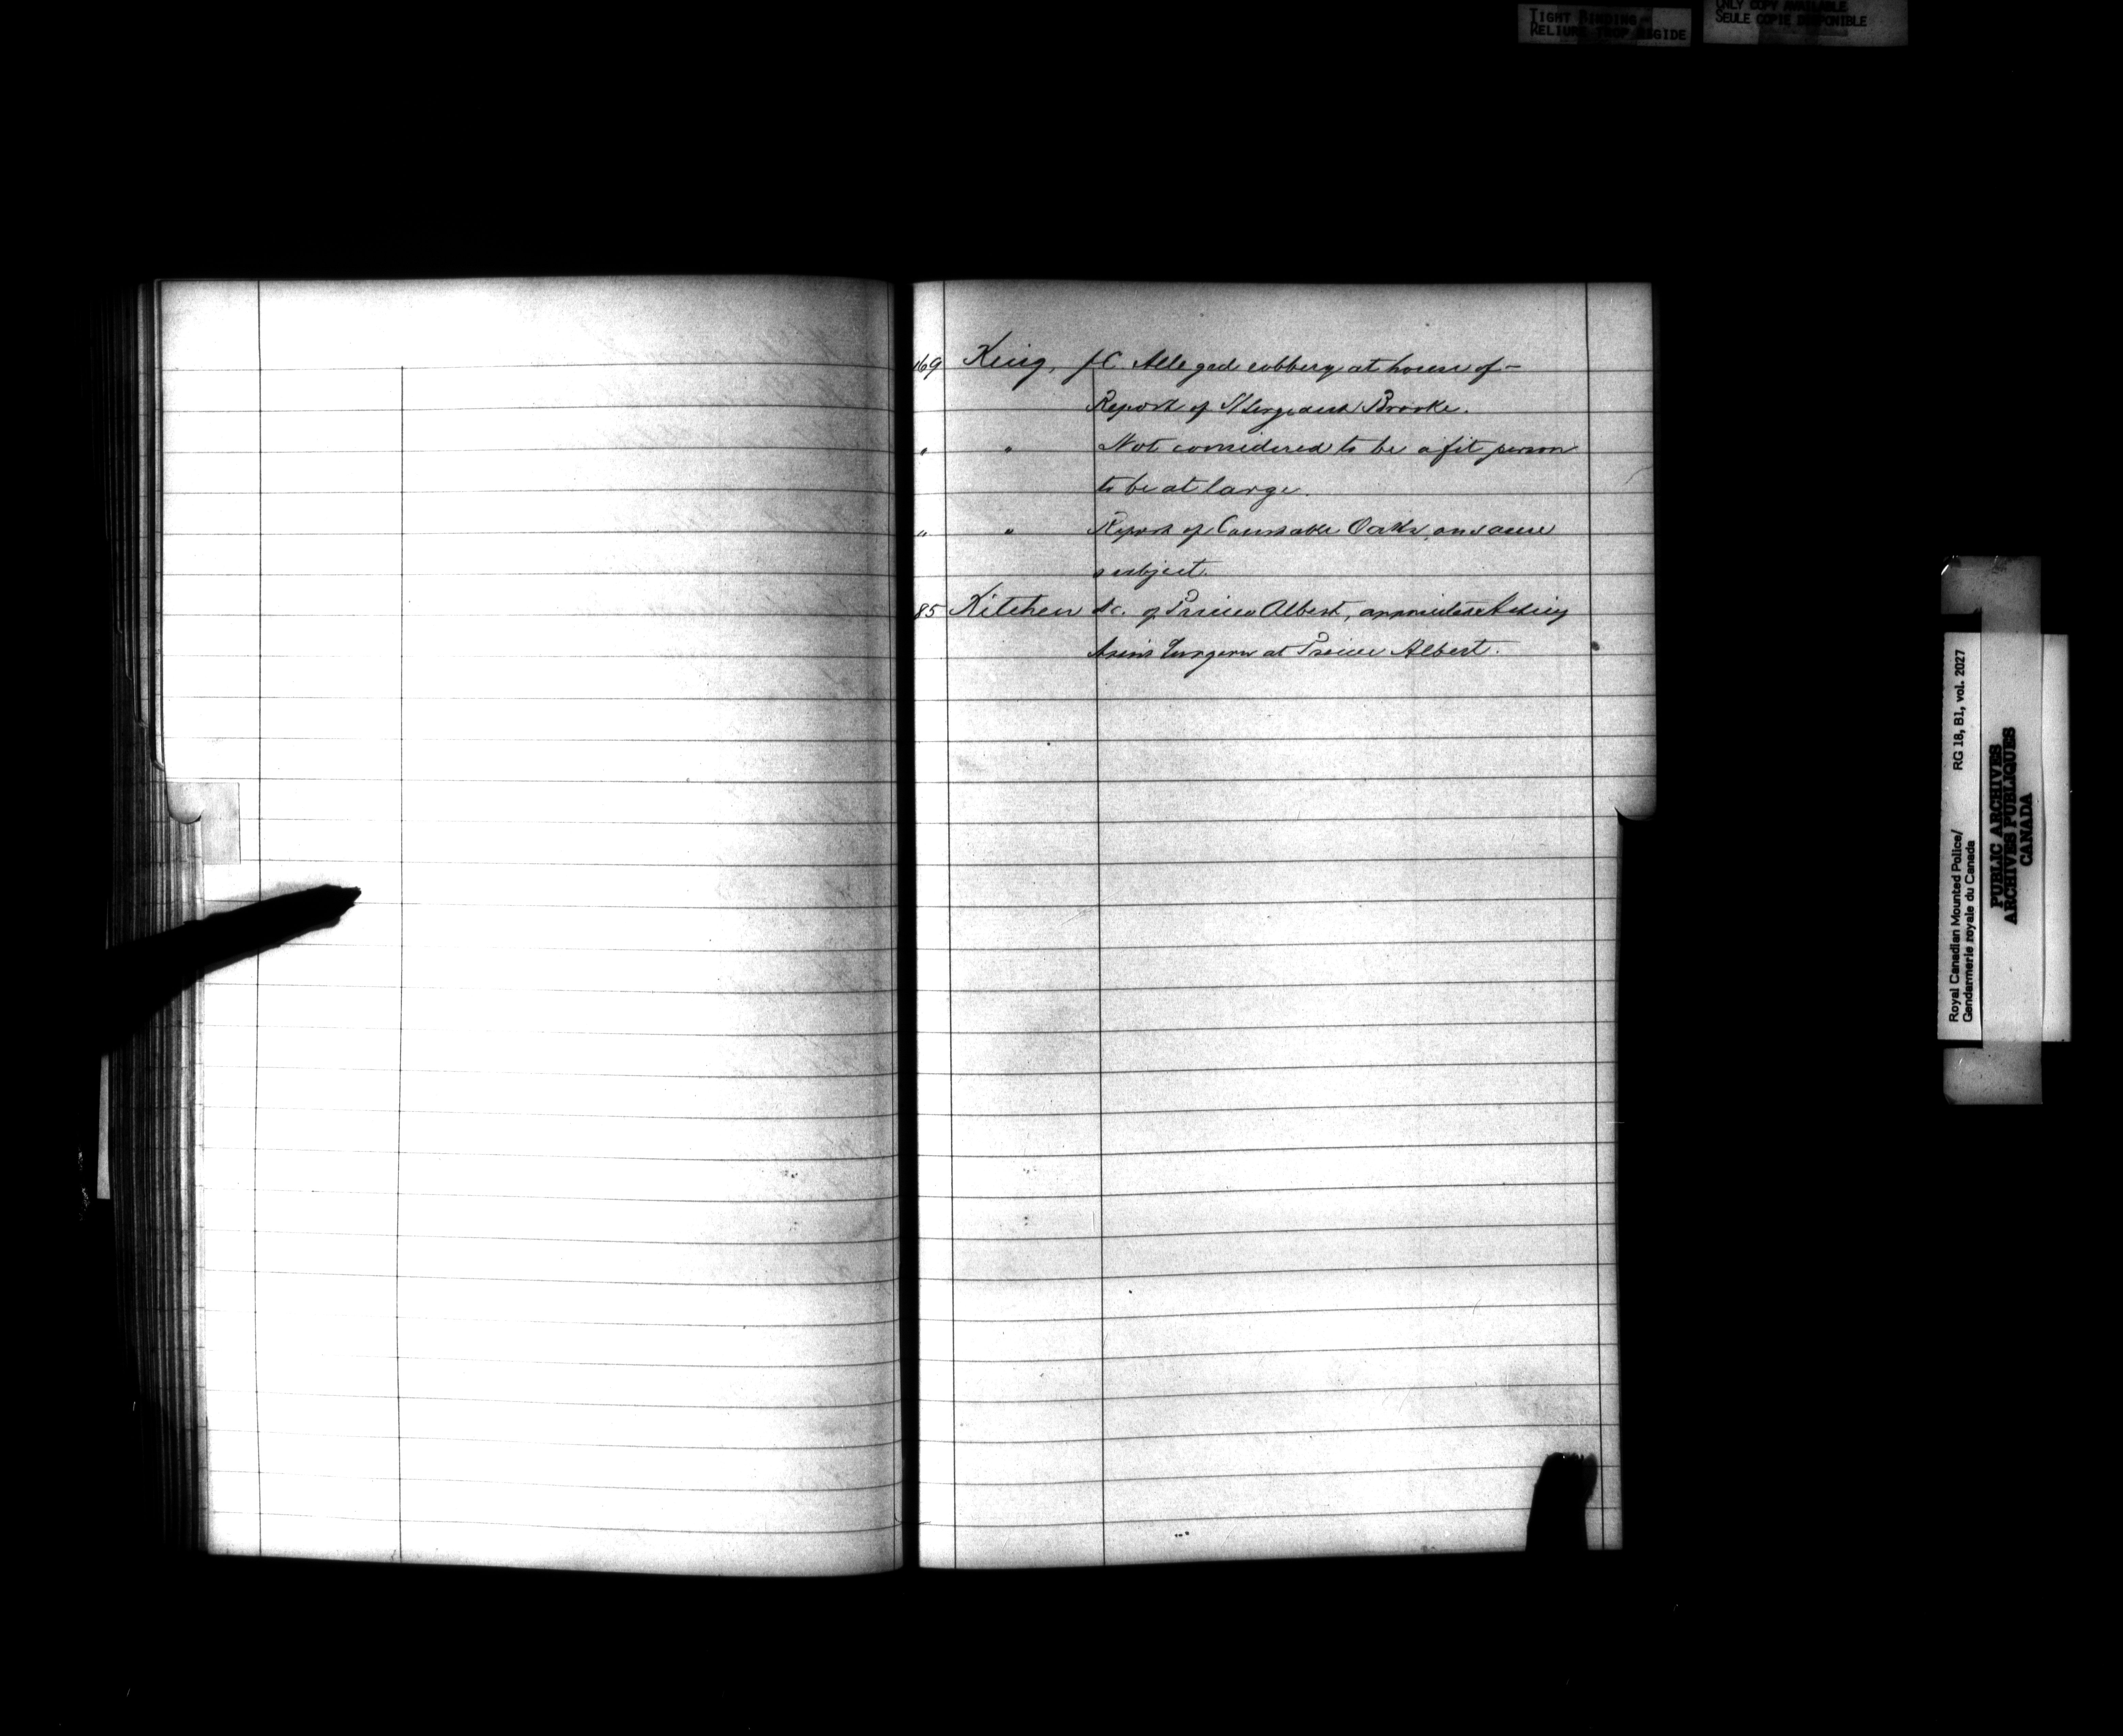 TIGHT BINDING
RELIURE TROP RIGIDE
ONLY COPY AVAILABLE
SEULE COPIE DISPONIBLE
169 King, J.C. Alleged robbery at house of –
Report of S/Sergeant Brooke.
" " Not considered to be a fit person
to be at large.
" " Report of Constable on same
subject.
85 Kitchen Dr. of Prince Albert, appointed Acting
Assist Surgeon at Prince Albert.
Royal Canadian Mounted Police/ RG 18, B1, vol. 2027
Gendarmerie royale du Canada
PUBLIC ARCHIVES
ARCHIVES PUBLIQUES
CANADA